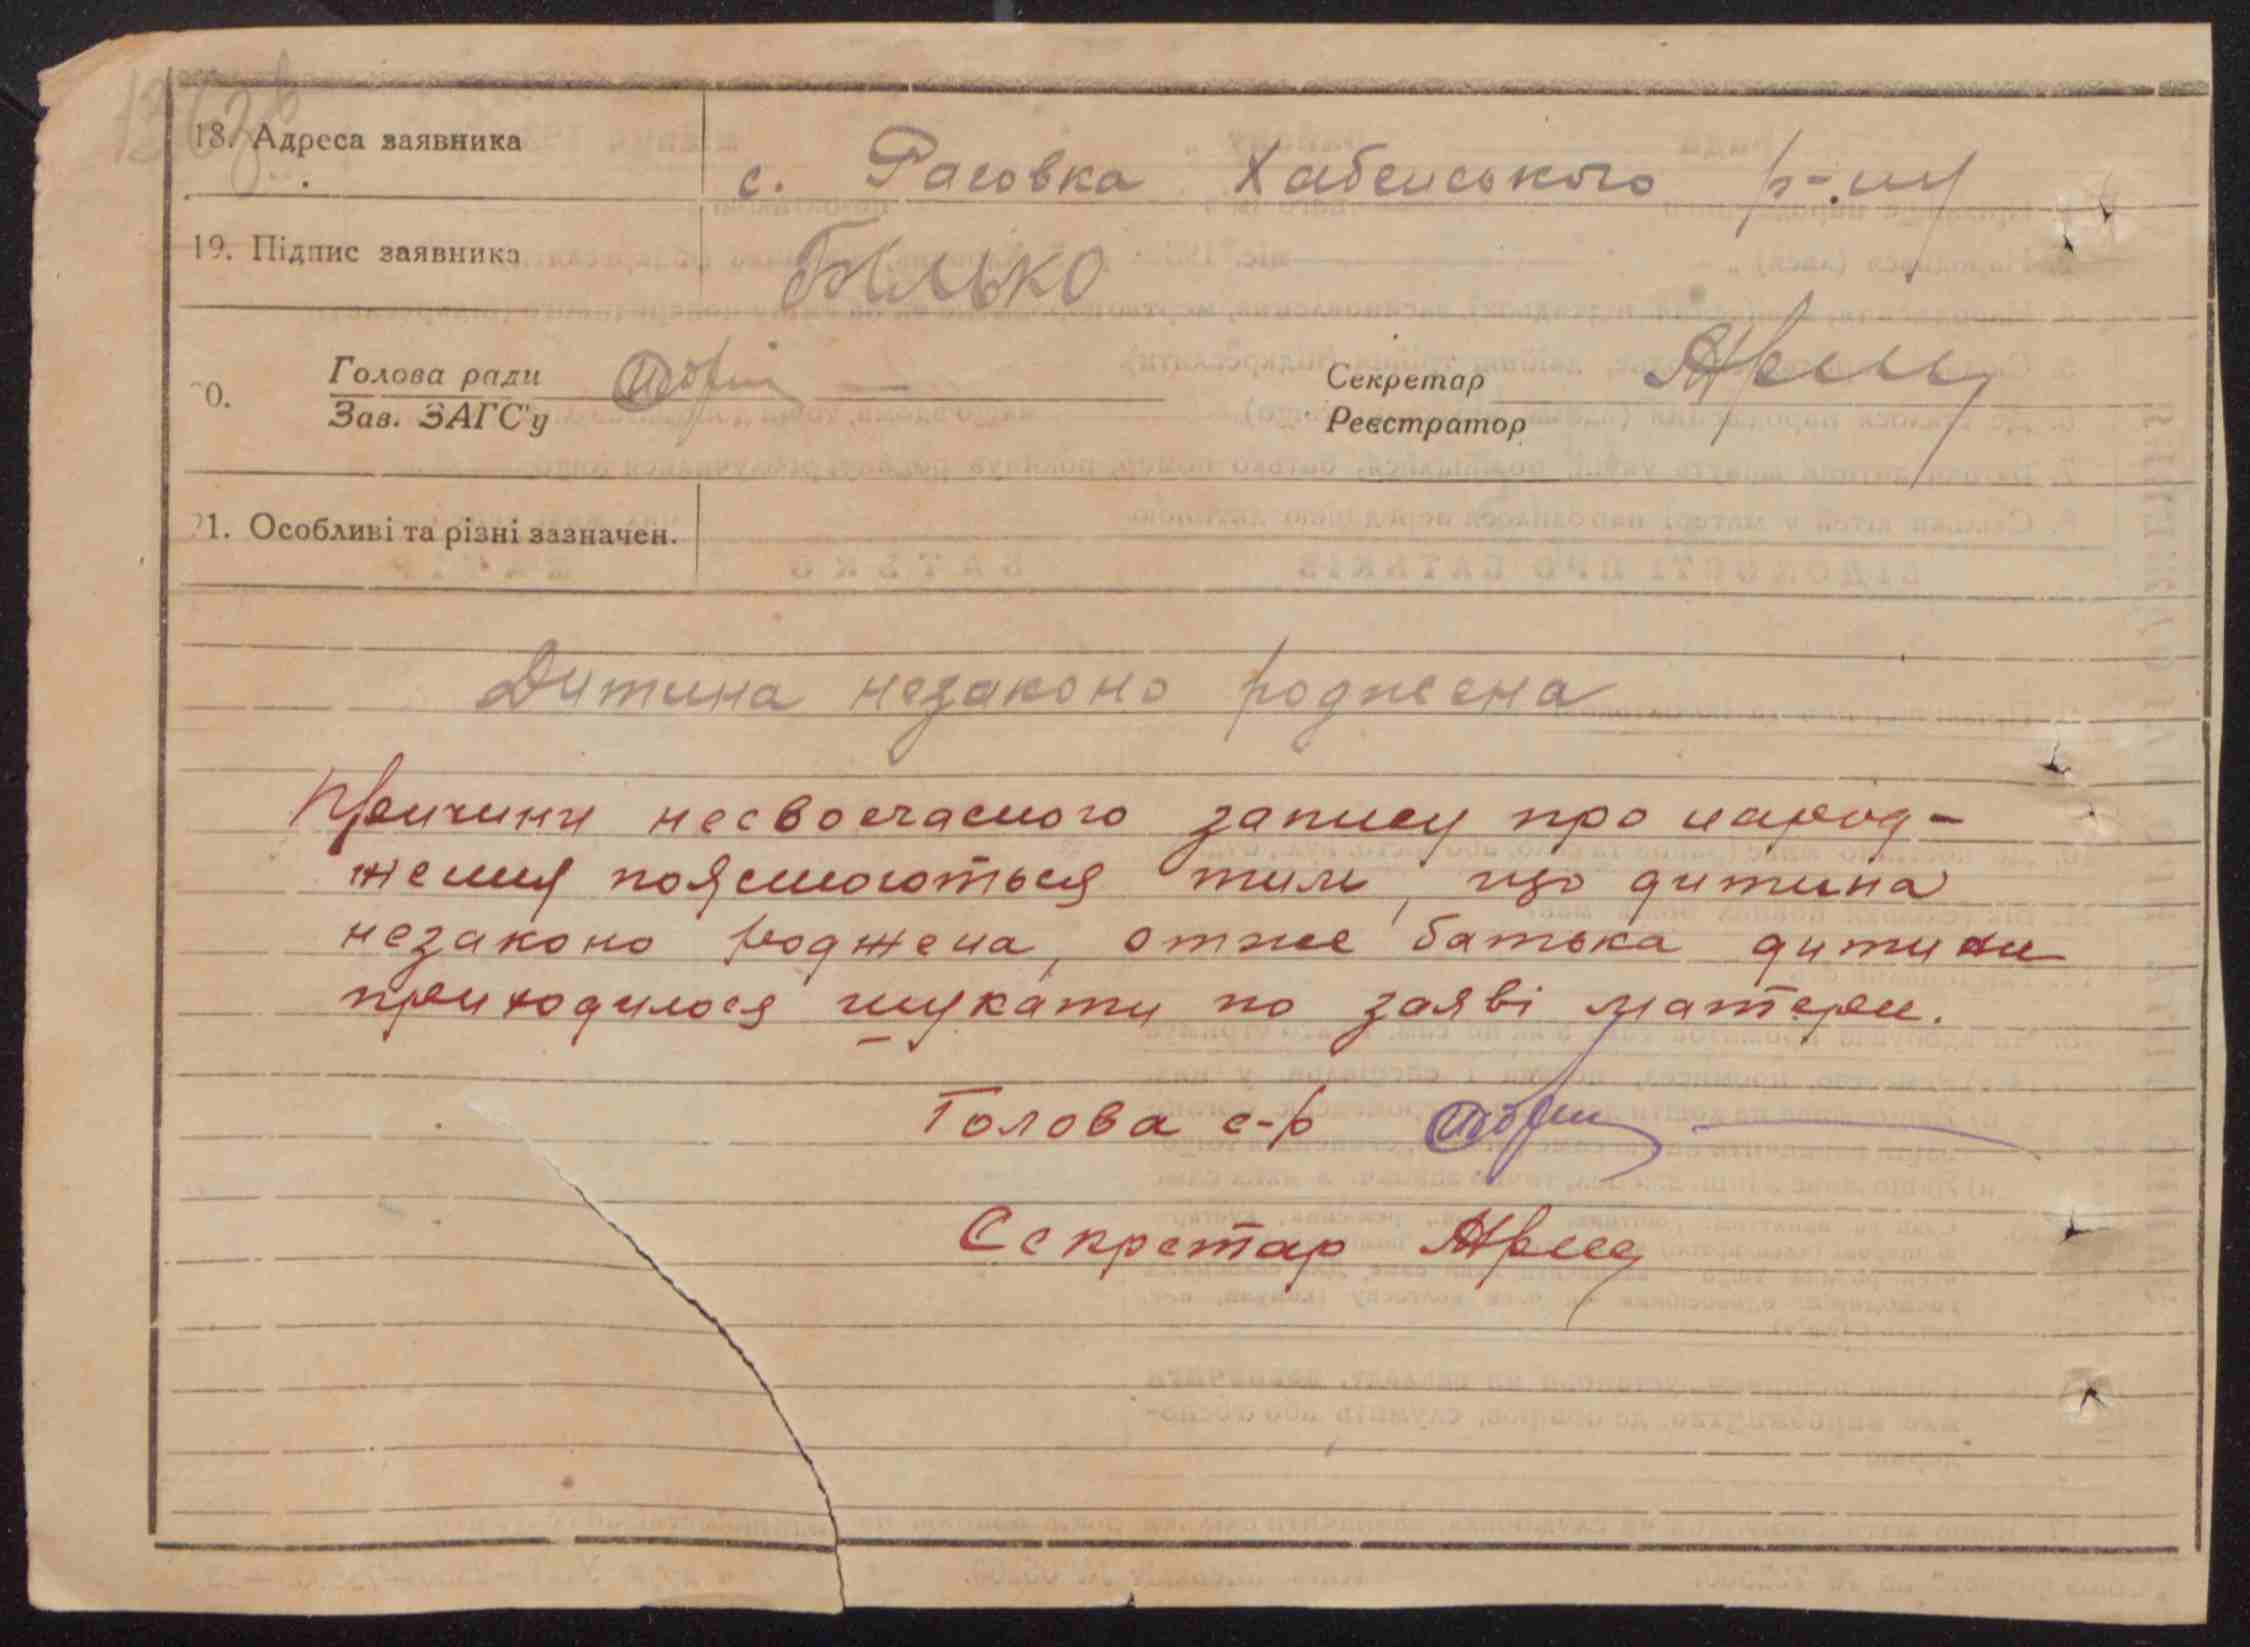 18. Адреса заявника с. Расовка Хабенського р-ну
19. Підпис заявника Білько
Голова ради Секретар
0. Зав. ЗАГС'у Реєстратор
21. Особливі та різні зазначен.
Дитина незаконо роджена
Причини несвоечасного запису про народ-
ження пояснюються тим, що дитина
незаконо роджена, отже батька дитини
приходилося шукати по заяві матери.
Голова с-р
Секретар